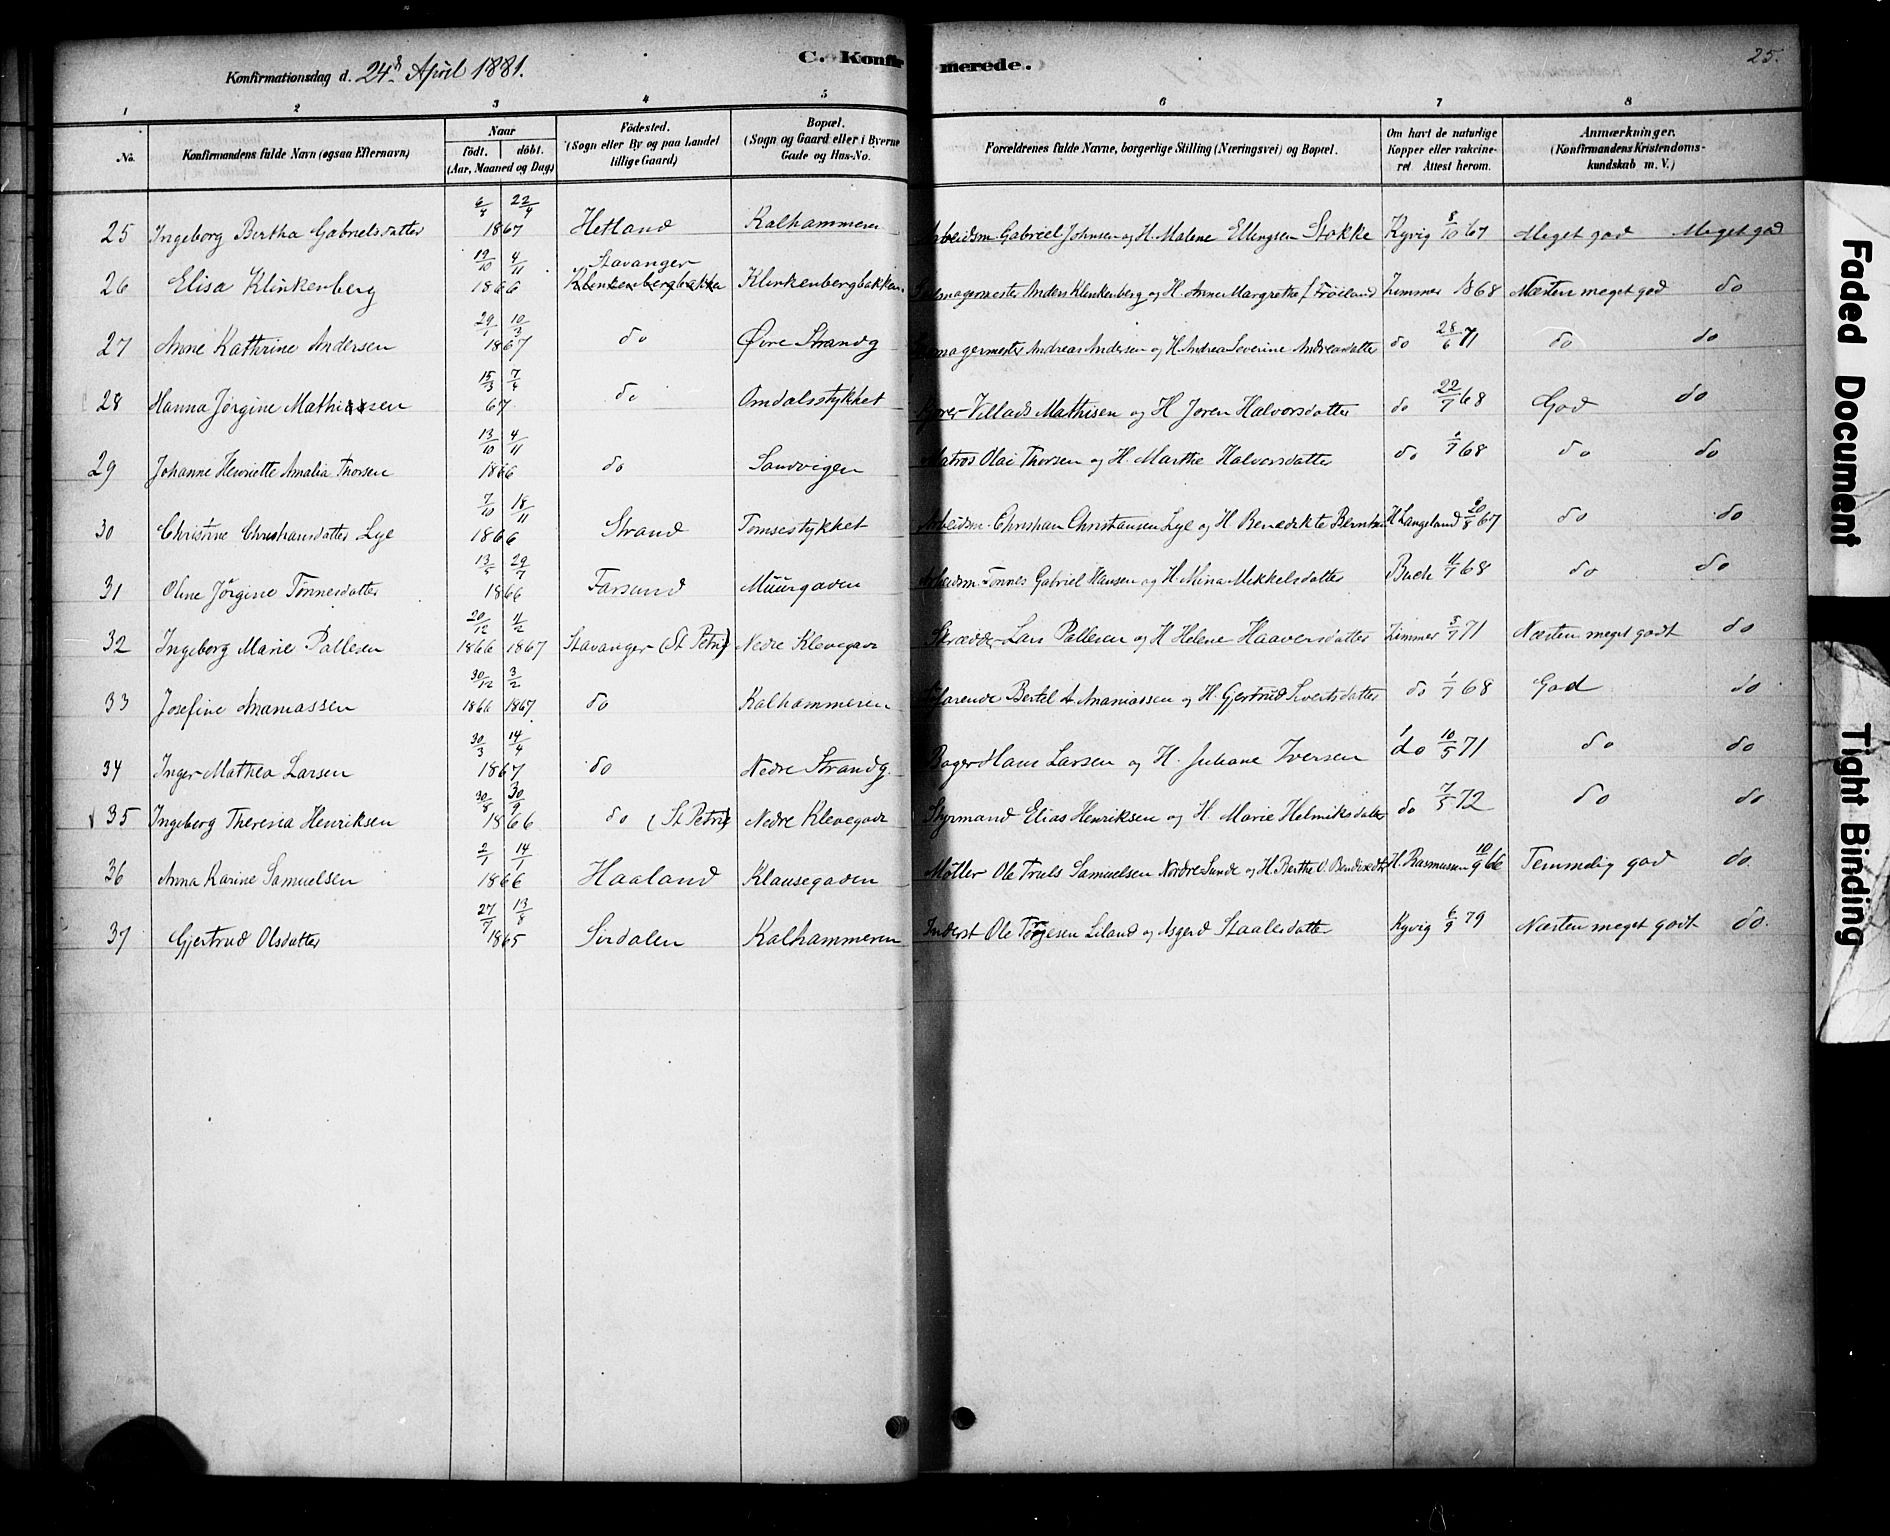 Konfirmationsdag d. 24de April 1881.
C. Konfirmerede.
25.
1 2 3 4 5 6 7 8
No.
Konfirmandens fulde Navn (ogsaa Efternavn)
Naar
födt. döbt.
(Aar, Maaned og Dag)
Födested.
(Sogn eller By og paa Landet
tillige Gaard)
Bopæl.
(Sogn og Gaard eller i Byerne
Gade og Hus-No.
Forældrenes fulde Navne, borgerlige Stilling (Næringsvei) og Bopæl.
Om havt de naturlige
Kopper eller vakcine-
ret Attest herom.
Anmærkninger.
(Konfirmandens Kristendoms-
kundskab m. V.)
25 Ingeborg Bertha Gabrielsdatter 6/4 22/4 1867 Hetland Kalhammeren Arbeidsm. Gabriel Johnsen og H. Malene Ellingsen Stokke Kyvig 8/10 67 Meget god Meget god
26 Elisa Klinkenberg 19/10 4/11 1866 Stavanger Klinkenbergbakken Klinkenbergbakken Anders Klinkenberg og H. Anne Margrethe f. Frøiland Zimmer 1868 Næsten meget god do
27 Anne Kathrine Andersen 29/1 10/3 1867 do Øvre Strandg Andreas Andersen og H. Andrea Severine Andreasdatter do 28/6 71 do do
28 Hanna Jørgine Mathiassen 15/3 7/4 67 do Omdalsstykket Villads Mathisen og H Joren Halvorsdatter do 22/7 68 God do
29 Johanne Henriette Amalia Thorsen 13/10 4/11 1866 do Sandvigen Matros Olai Thorsen og H. Marthe Halvorsdatter do 1/7 68 do do
30 Christine Christiansdatter Lye 7/10 18/11 1866 Strand Tomsestykket Arbeidsm. Christian Christiansen Lye og H Benedikte Berntsen H Langeland 20/8 67 do do
31 Oline Jörgine Tönnesdatter 13/5 29/7 1866 Farsund Müürgaden Arbeidsm. Tönnes Gabriel Hansen og H. Mina Mikkelsdatter Buch 11/7 68 do do
32 Ingeborg Marie Pallesen 20/12 11/2 1866 1867 Stavanger (St Petri) Nedre Klevegade Skrædder Lars Pallesen og H Helene Haaversdatter Zimmer 5/7 71 Næsten meget godt do
33 Josefine Ananiassen 30/12 3/2 1866 1867 do Kalhammeren Bertel A. Ananiassen og H. Gjertrud Sivertsdatter do 1/7 68 God do
34 Inger Mathea Larsen 30/3 14/4 1867 do Nedre Strandg. Bager Hans Larsen og H. Juliane Iversen do 10/5 71 do do
35 Ingeborg Theresia Henriksen 30/8 30/9 1866 do (St Petri) Nedre Klevegade Styrmand Elias Henriksen og H. Marie Helmiksdatter do 7/5 72 do do
36 Anna Karine Samuelsen 2/1 14/1 1866 Haaland Klausegaden Møller Ole Truls Samuelsen Nordre Sunde og H. Berthe O. Bendiksdtr H. Rasmussen 10/9 66 Temmelig god do.
37 Gjertrud Olsdatter 27/7 13/8 1865 Sirdalen Kalhammeren Inderst Ole Tørresen Liland og Asgerd Staalesdatter Kyvig 6/9 79 Næsten meget godt do.
Faded Document
Tight Binding